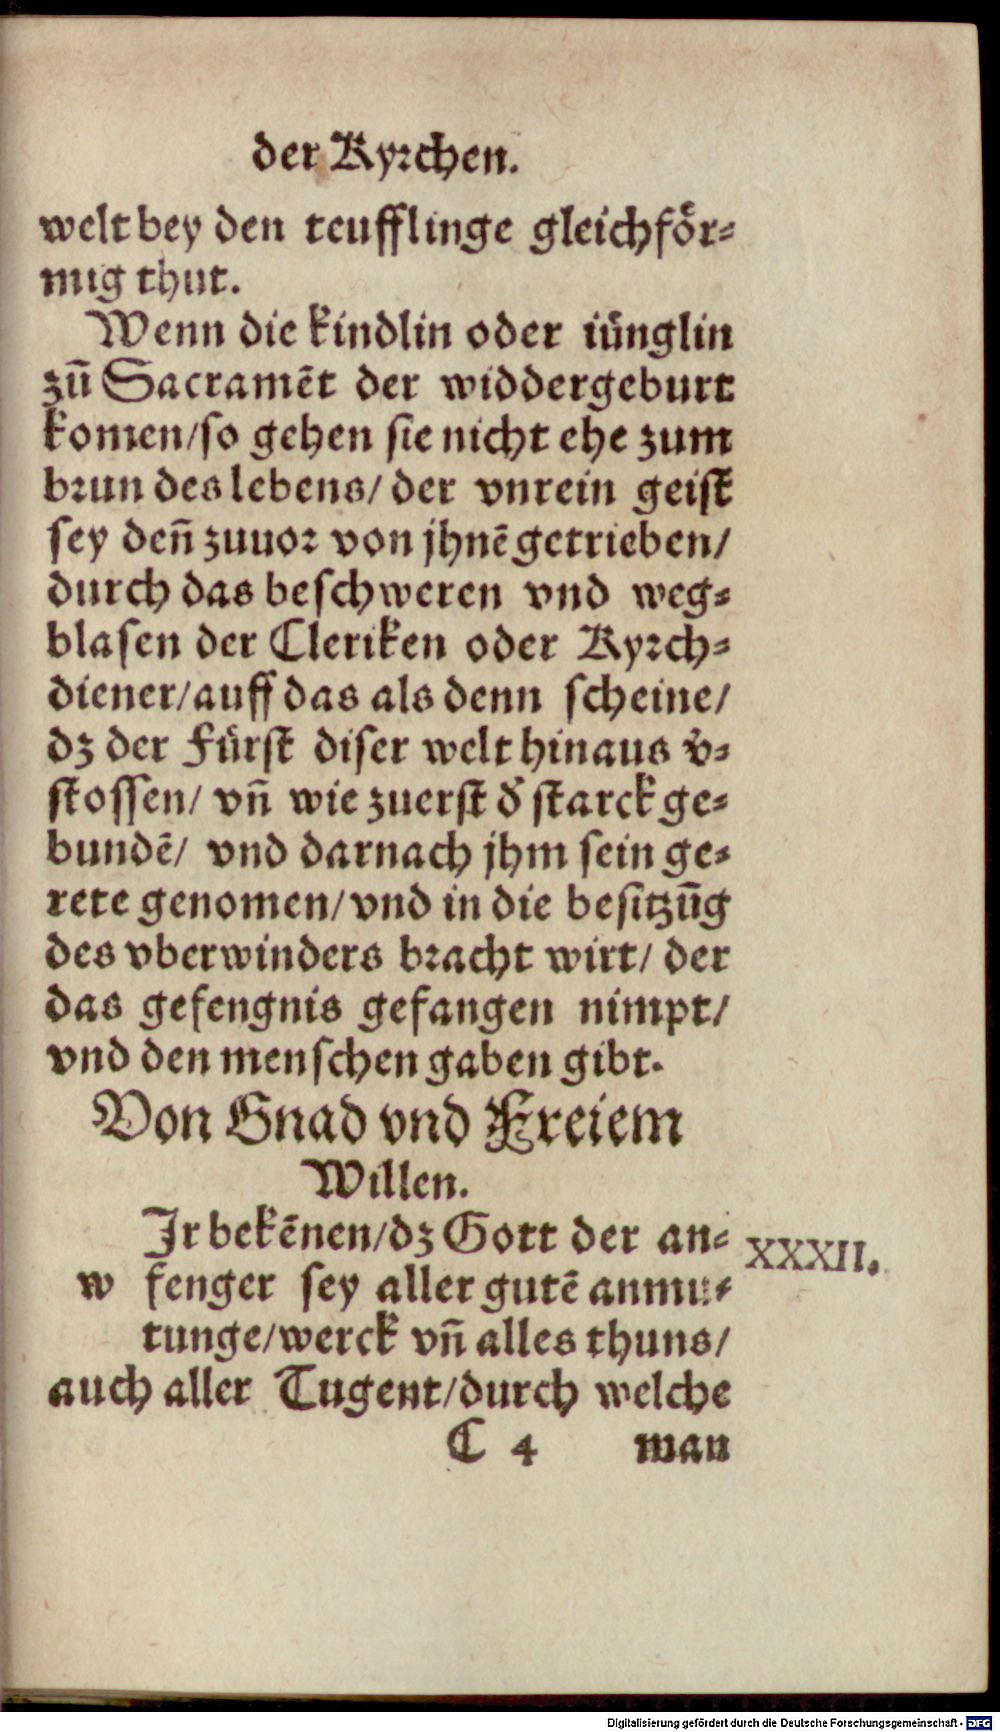 der Kyrchen.
welt bey den teufflinge gleichfoͤr⸗
mig thut.
Wenn die kindlin oder iuͤnglin
zuͦ Sacramēt der widdergeburt
komen/so gehen sie nicht ehe zum
brun des lebens/ der vnrein geist
sey deñ zuuor von jhnē getrieben/
durch das beschweren vnd weg⸗
blasen der Cleriken oder Kyrch⸗
diener/auff das als denn scheine/
dz der Fuͤrst diser welt hinaus v̄⸗
stossen/ vñ wie zuerst d̄ starck ge⸗
bundē/ vnd darnach jhm sein ge⸗
rete genomen/vnd in die besitzūg
des vberwinders bracht wirt/ der
das gefengnis gefangen nimpt/
vnd den menschen gaben gibt.
Von Gnad vnd Freiem
Willen.
Jr bekēnen/dz Gott der an⸗ XXXII.
w fenger sey aller gutē anmu⸗
tunge/werck vñ alles thuns/
auch aller Tugent/durch welche
C 4 man
Digitalisierung gefördert durch die Deutsche Forschungsgemeinschaft - DFG